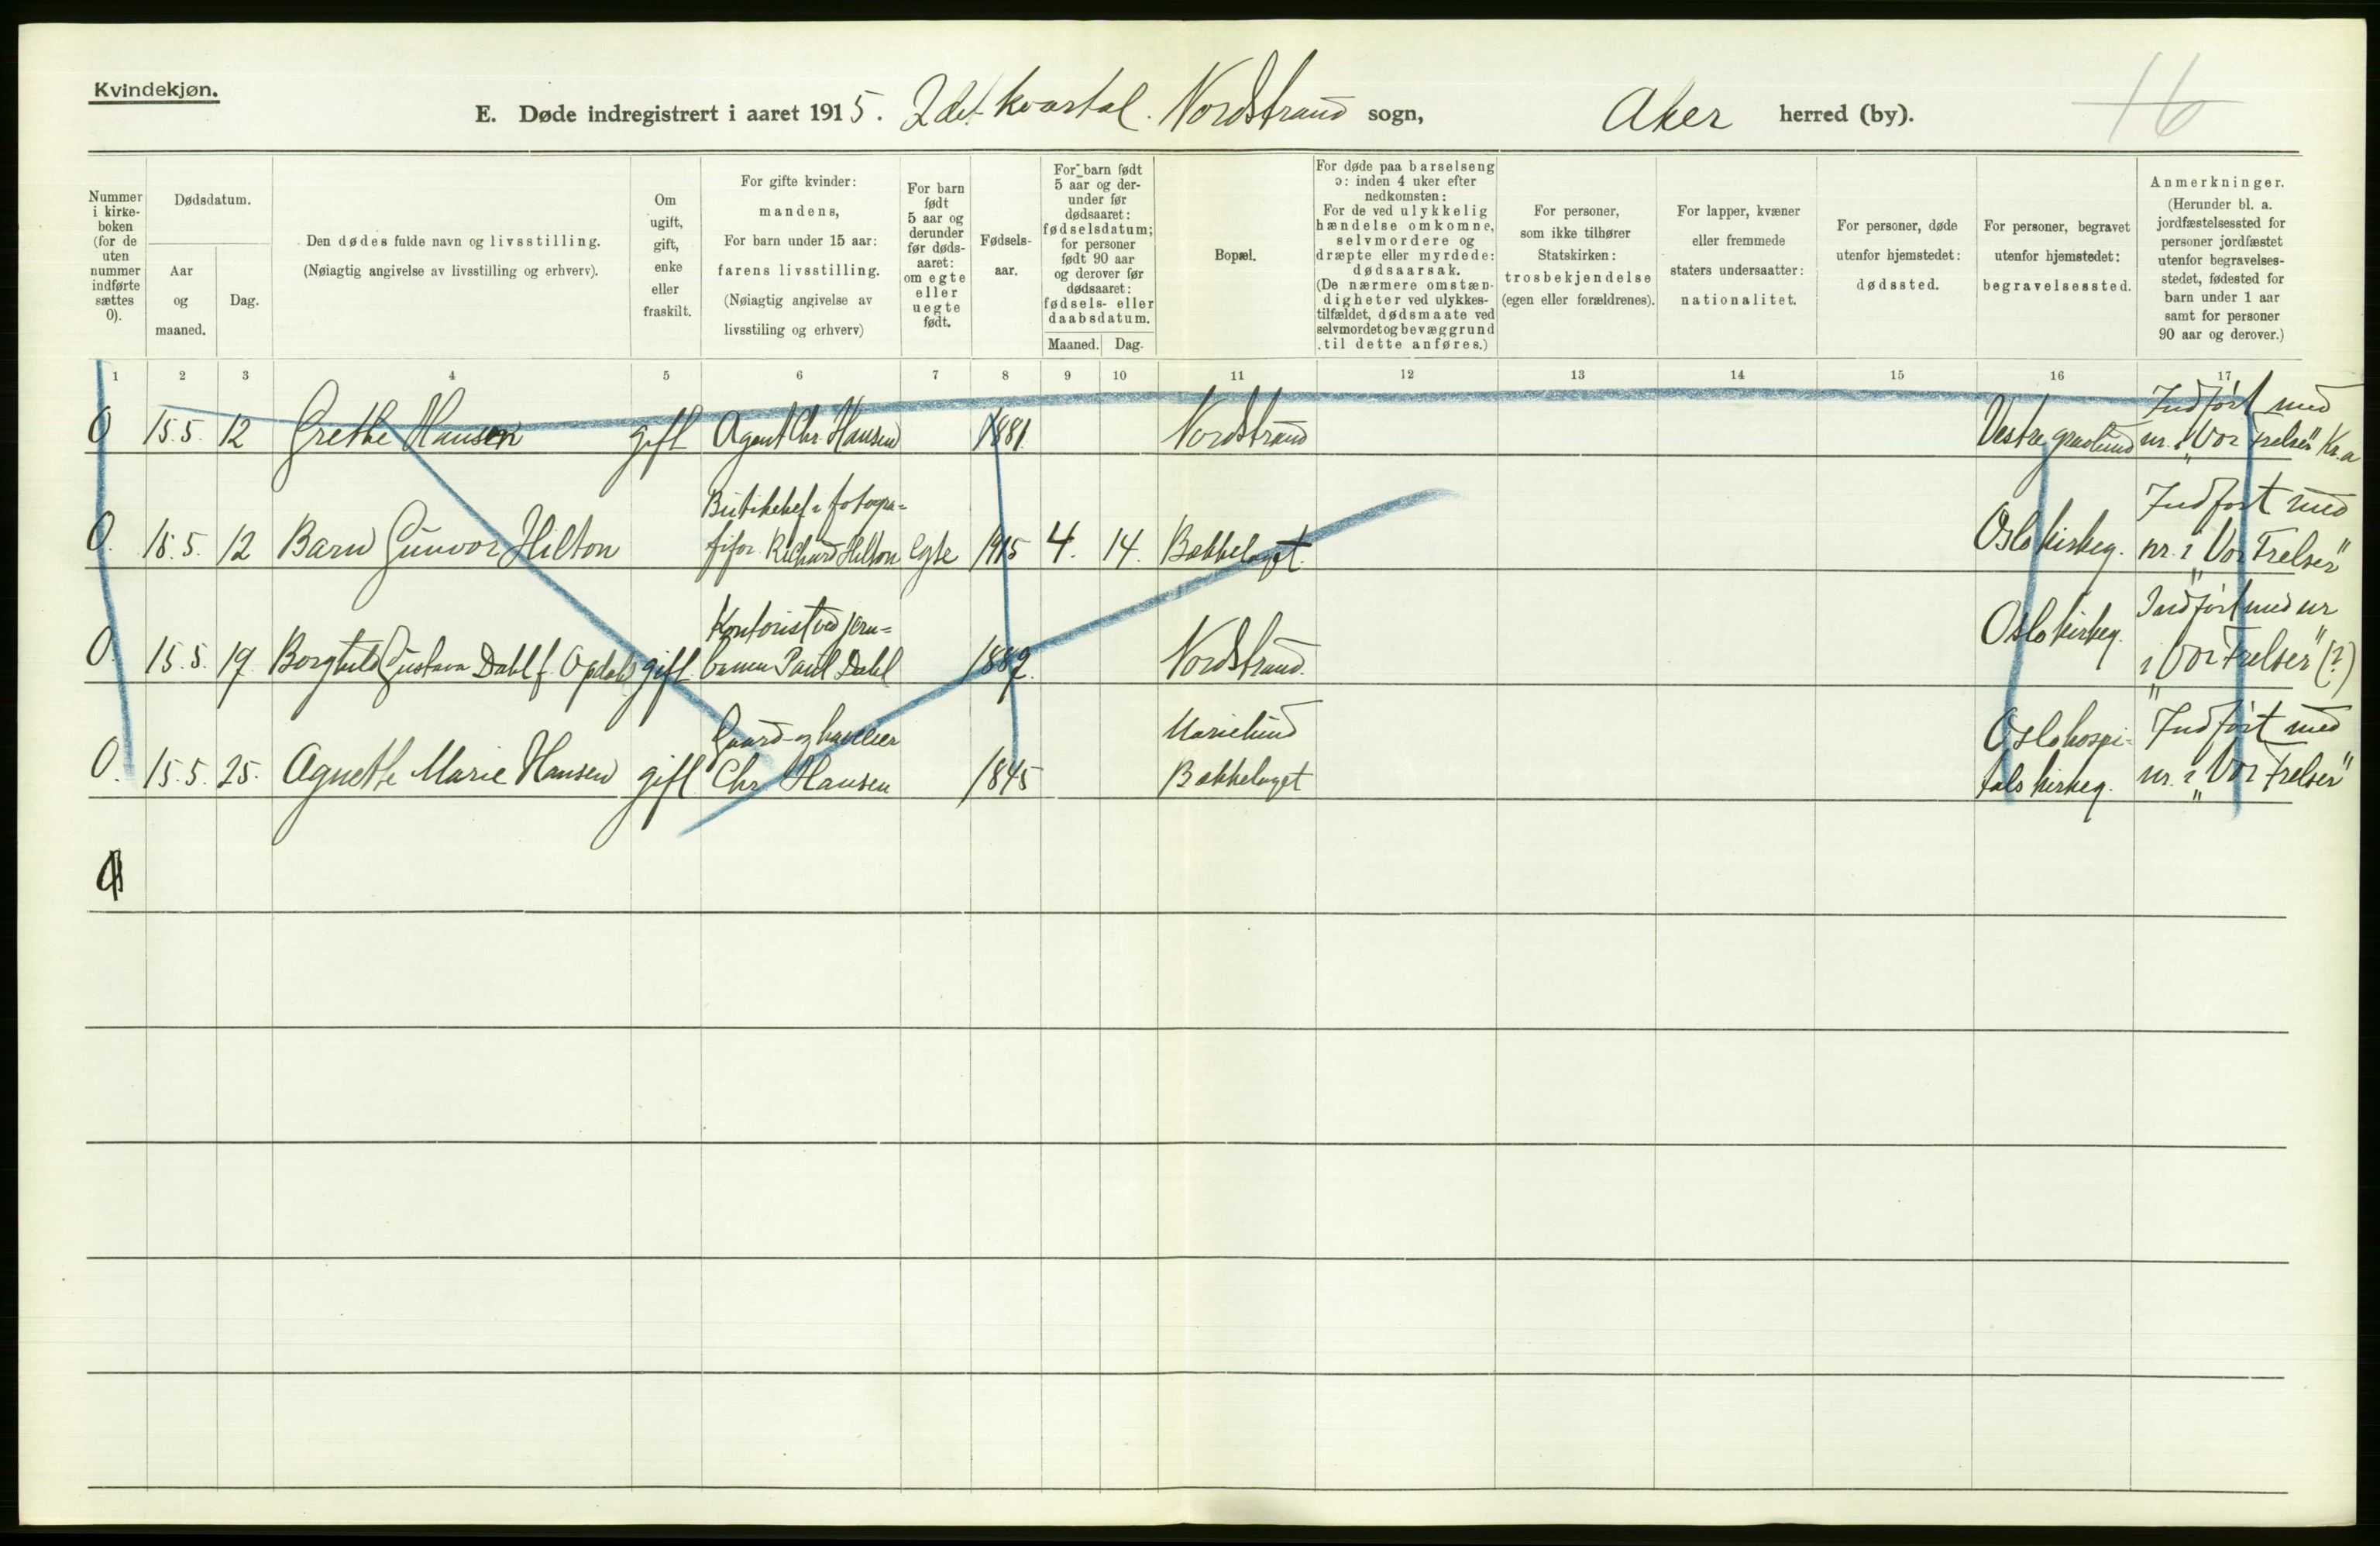 Kvindekjøn.
E. Døde indregistrert i aaret 1915. 2det kvartal. Nordstrand sogn, Aker herred (by).
16
Nummer
i kirke-
boken
(for de
uten
nummer
indførte
sættes
0).
Dødsdatum.
Aar
og
maaned.
Dag.
Den dødes fulde navn og livsstilling.
(Nøiagtig angivelse av livsstilling og erhverv).
Om
ugift,
gift,
enke
eller
fraskilt.
For gifte kvinder:
mandens,
For barn under 15 aar:
farens livsstilling.
(Nøiagtig angivelse av
livsstiling og erhverv)
For barn
født
5 aar og
derunder
før døds-
aaret:
om egte
eller
uegte
født.
Fødsels-
aar.
For barn født
5 aar og der-
under før
dødsaaret:
fødselsdatum;
for personer
født 90 aar
og derover før
dødsaaret:
fødsels- eller
daabsdatum.
Maaned. Dag.
Bopæl.
For døde paa barselseng
ɔ: inden 4 uker efter
nedkomsten:
For de ved ulykkelig
hændelse omkomne,
selvmordere og
dræpte eller myrdede:
dødsaarsak.
(De nærmere omstæn-
digheter ved ulykkes-
tilfældet, dødsmaate ved
selvmordet og bevæggrund
til dette anføres.)
For personer,
som ikke tilhører
Statskirken:
trosbekjendelse
(egen eller forældrenes).
For lapper, kvæner
eller fremmede
staters undersaatter:
nationalitet.
For personer, døde
utenfor hjemstedet:
dødssted.
For personer, begravet
utenfor hjemstedet:
begravelsessted.
Anmerkninger.
(Herunder bl. a.
jordfæstelsessted for
personer jordfæstet
utenfor begravelses-
stedet, fødested for
barn under 1 aar
samt for personer
90 aar og derover.)
1 2 3 4 5 6 7 8 9 10 11 12 13 14 15 16 17
Indført med
0 15.5. 12 Grethe Hansen gift Agent Chr. Hansen 1881 Nordstrand Vestre gravlund nr. i "Vor Frelser" Kr.a
Indført med
0. 15.5. 12 Barn Gunvor Hilton Richard Hilton egte 1915 4. 14. Bækkelaget. Oslo kirkeg. nr. i "Vor Frelser"
Kontorist ved jern= Oslo kirkeg. Indført med nr
0. 15.5. 19. Borghild Gustava Dahl f. Opdahl gift banen Paul Dahl 1889. Nordstrand. i "Vor Frelser" (?)
Gaard- og Marielund Oslo hospi- Indført med
0. 15.5. 25. Agnethe Marie Hansen gift Chr Hansen 1845 Bækkelaget tals kirkeg. nr. i "Vor Frelser"